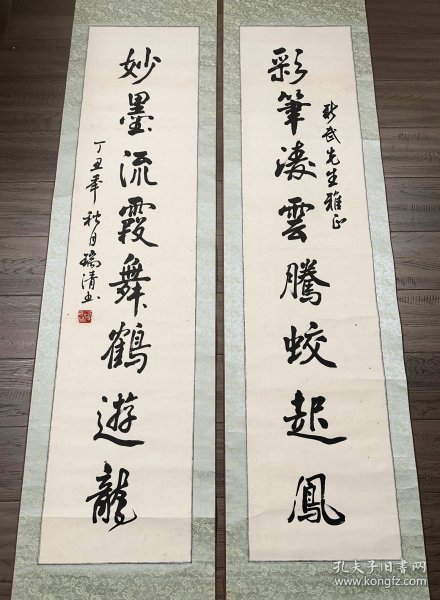 彩筆凌雲騰蛟起鳳
武先生雅正
妙墨流霞舞鶴遊龍
丁丑年秋月瑞清书
孔夫子旧书网
www.kongfz.com